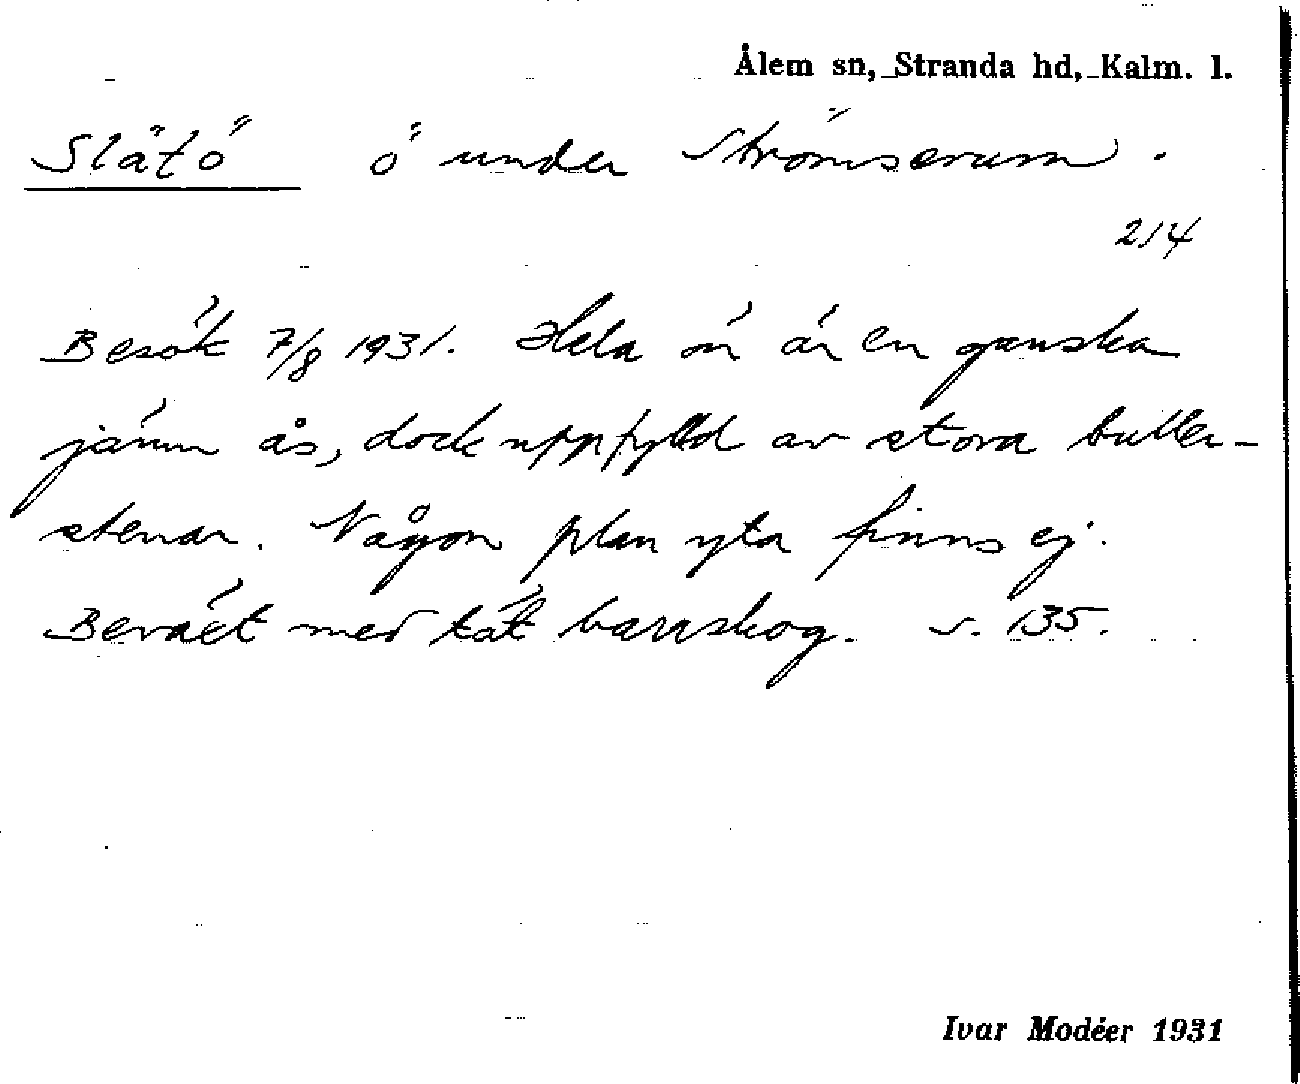 Ålem sn, Stranda hd, Kalm. l.
Slätö ö under Strömserum.
214
Besök 7/8 1931. Hela ön är en ganska
jämn ås, dock uppfylld av stora buller-
stenar. Någon plan yta finns ej.
Beväxt med tät barrskog. s. 135.
Ivar Modéer 1931